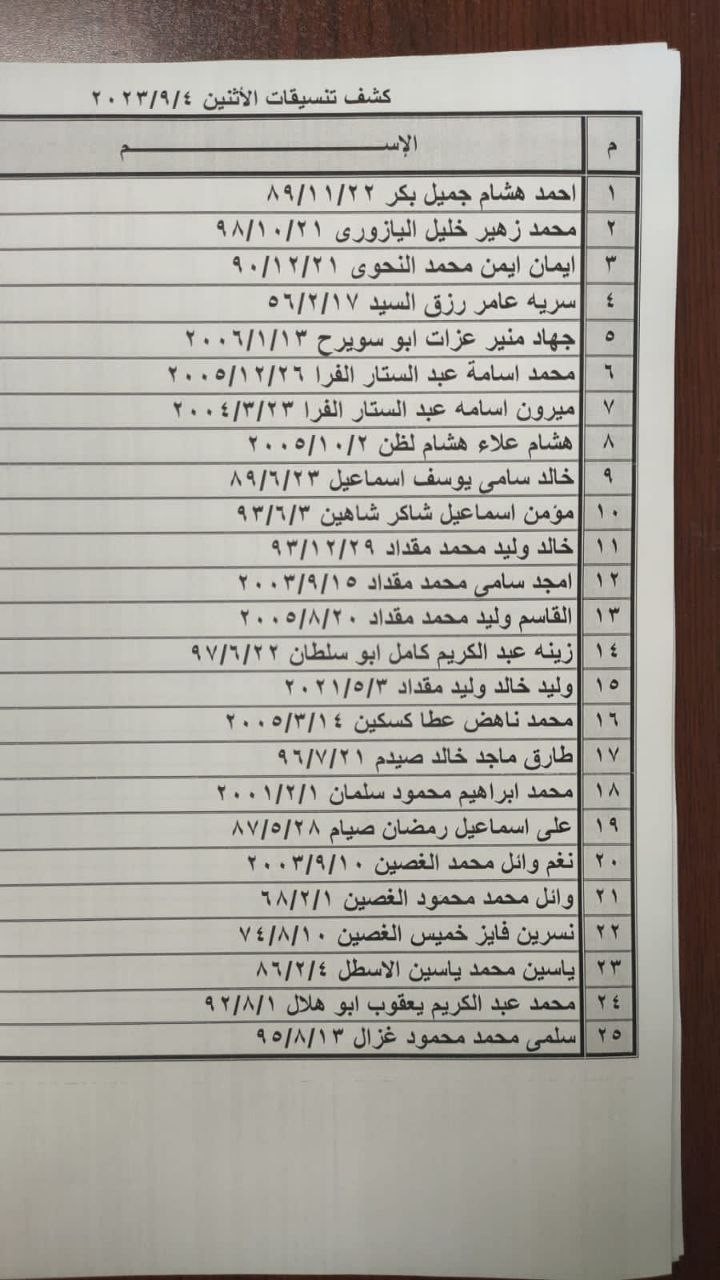 كشف تنسيقات الأثنين ٢٠٢٣/٩/٤
م الإســـــــــــــــــم
١ احمد هشام جميل بكر ٨٩/١١/٢٢
٢ محمد زهير خليل اليازورى ٩٨/١٠/٢١
٣ ايمان ايمن محمد النحوى ٩٠/١٢/٢١
٤ سريه عامر رزق السيد ٥٦/٢/١٧
٥ جهاد منير عزات ابو سويرح ٢٠٠٦/١/١٣
٦ محمد اسامة عبد الستار الفرا ٢٠٠٥/١٢/٢٦
٧ ميرون اسامه عبد الستار الفرا ٢٠٠٤/٣/٢٣
٨ هشام علاء هشام لظن ٢٠٠٥/١٠/٢
٩ خالد سامى يوسف اسماعيل ٨٩/٦/٢٣
١٠ مؤمن اسماعيل شاكر شاهين ٩٣/٦/٣
١١ خالد وليد محمد مقداد ٩٣/١٢/٢٩
١٢ امجد سامى محمد مقداد ٢٠٠٣/٩/١٥
١٣ القاسم وليد محمد مقداد ٢٠٠٥/٨/٢٠
١٤ زينه عبد الكريم كامل ابو سلطان ٩٧/٦/٢٢
١٥ وليد خالد وليد مقداد ٢٠٢١/٥/٣
١٦ محمد ناهض عطا كسكين ٢٠٠٥/٣/١٤
١٧ طارق ماجد خالد صيدم ٩٦/٧/٢١
١٨ محمد ابراهيم محمود سلمان ٢٠٠١/٢/١
١٩ على اسماعيل رمضان صيام ٨٧/٥/٢٨
٢٠ نغم وائل محمد الغصين ٢٠٠٣/٩/١٠
٢١ وائل محمد محمود الغصين ٦٨/٢/١
٢٢ نسرين فايز خميس الغصين ٧٤/٨/١٠
٢٣ ياسين محمد ياسين الاسطل ٨٦/٢/٤
٢٤ محمد عبد الكريم يعقوب ابو هلال ٩٢/٨/١
٢٥ سلمى محمد محمود غزال ٩٥/٨/١٣